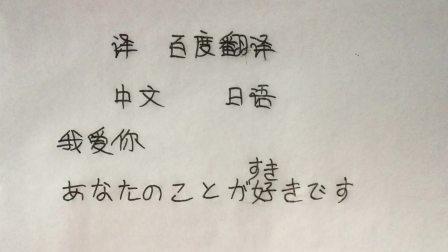 译 百度翻译
中文 日语
我爱你
すき
あなたのことが好きです